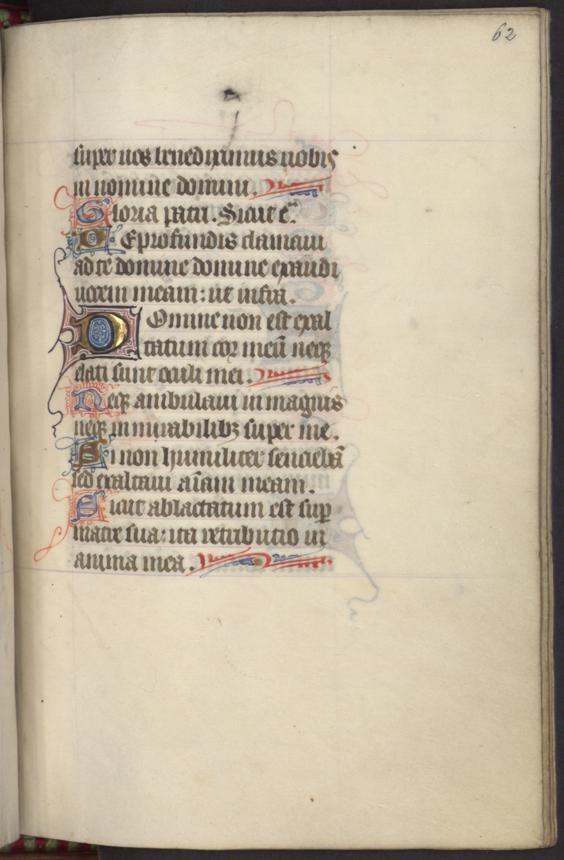 62
super uos benediximus nobis
in nomine domini.
Gloria patri. Sicut e.
De profundis clamaui
ad te domine domine exaudi
uocem meam: ut infra.
Domine non est exal
tatum cor meū neqz
elati sunt oculi mei.
Neqz ambulaui in magnis
neqz in mirabilibz super me.
Si non humiliter sentiebā
sed exaltaui aīam meam.
Sicut ablactatum est sup
matre sua: ita retributio in
anima mea.